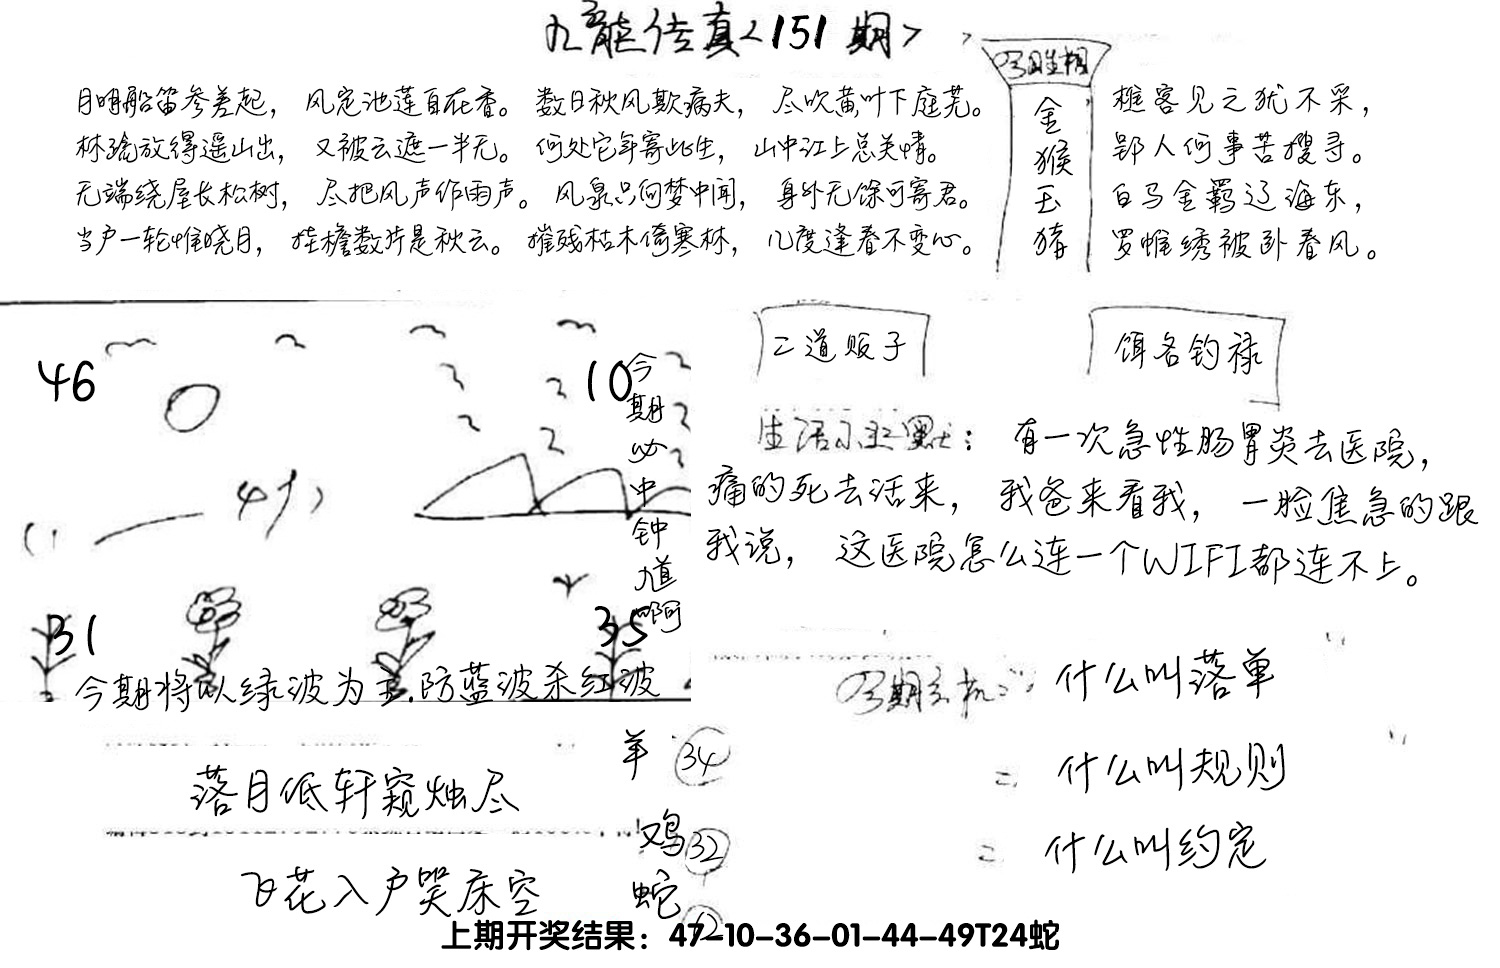 九龙传真<151期>
月明船笛参差起，风定池莲自在香。数日秋风欺病夫，尽吹黄叶下庭芜。
林疏放得遥山出，又被云遮一半无。何处它年寄此生，山中江上总关情。
无端绕屋长松树，尽把风声作雨声。风泉只向梦中闻，身外无馀可寄君。
当户一轮惟晓月，挂檐数片是秋云。摧残枯木倚寒林，几度逢春不变心。
金
猴
玉
猪
樵客见之犹不采，
郢人何事苦搜寻。
白马金羁辽海东，
罗帷绣被卧春风。
46
10
今期必中钟馗啊
31
35
今期将以绿波为主.防蓝波杀红波
二道贩子
饵名钓禄
有一次急性肠胃炎去医院，
痛的死去活来，我爸来看我，一脸焦急的跟
我说，这医院怎么连一个WIFI都连不上。
什么叫落单
二 什么叫规则
二 什么叫约定
落月低轩窥烛尽
飞花入户哭床空
羊 34
鸡 32
蛇
上期开奖结果：47-10-36-01-44-49T24蛇